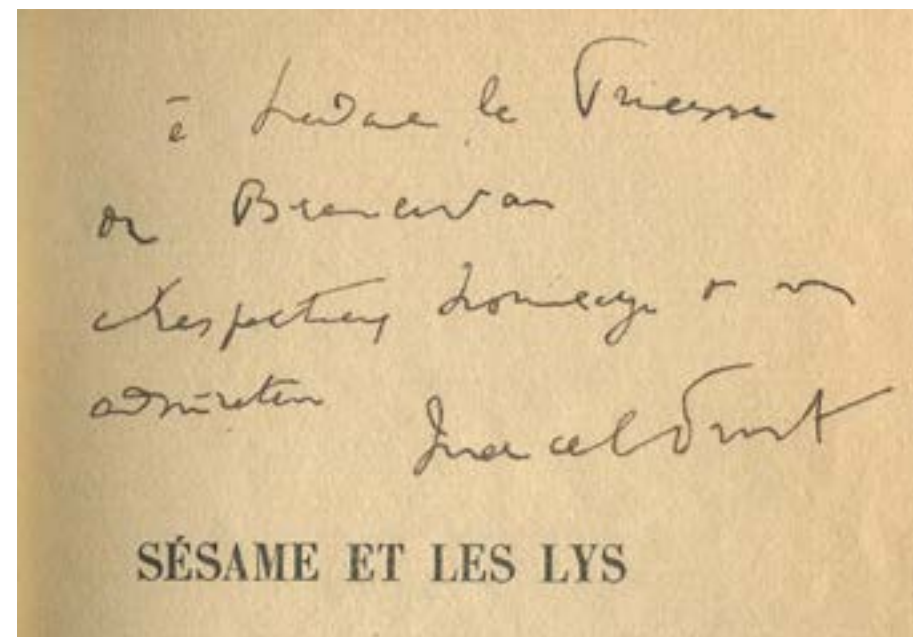 à Madame la Princesse
de Brancovan
Respectueux hommage d'un
admirateur
Marcel Proust
SÉSAME ET LES LYS